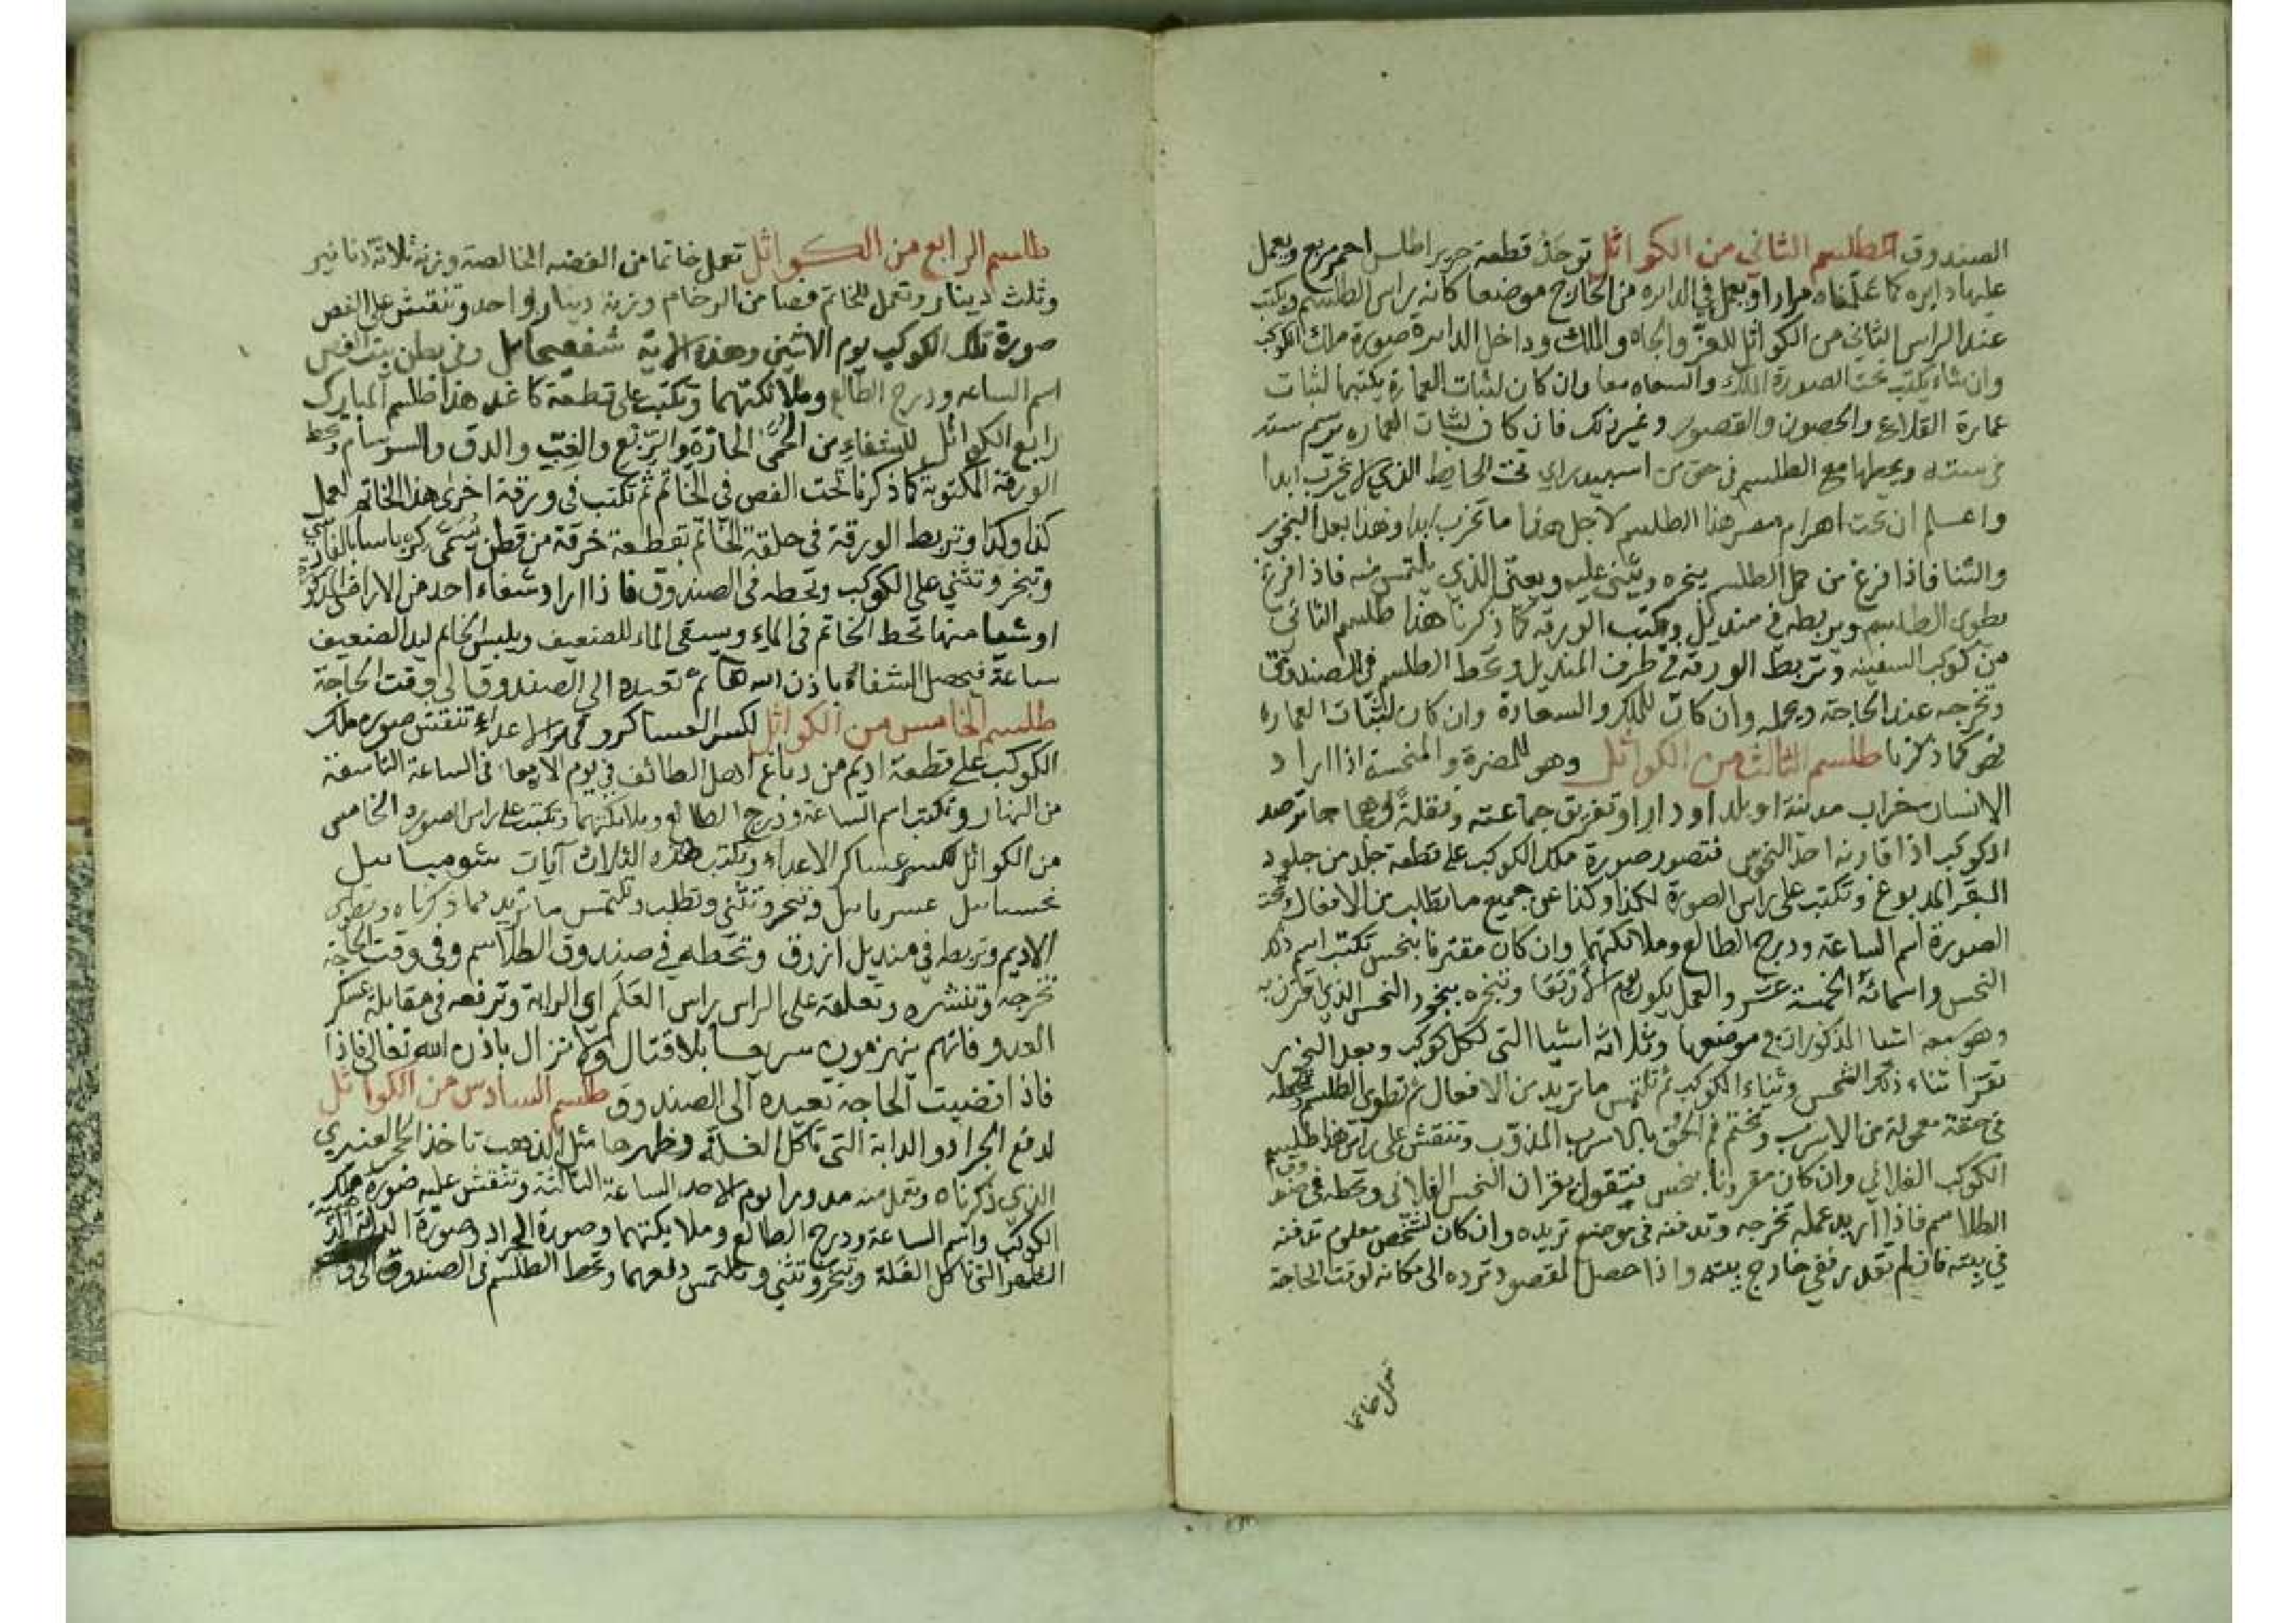 الصندوق الطلسم الثاني من الكواثل توخذ قطعة حرير اطلس احمر مربع ويعمل
عليها دايره كما علمناه مرارا ويعمل في الدايره من الخارج موضعا كانه براس الطلسم ويكتب
عند الراس الثاني من الكواثل للعز والجاه والملك وداخل الدايرة صورة ملك الكوكب
وان شاء يكتب تحت الصورة الملك والسعاده معا وان كان لثبات العمارة يكتبها لثبات
عمارة القلاع والحصون والقصور وغير ذلك فان كان لثبات العماره ترسم ستة
في ستة ويحطها مع الطلسم في حق من تحت الحايط الذي لا يخرب ابدا
واعلم ان تحت اهرام مصر هذا الطلسم لاجل هذا ما تخرب ابدا وهذا بعد البخور
والثنا فاذا فرغ من عمل الطلسم يبخره ويثني عليه ويعين الذي يلتمس منه فاذا فرغ
يطوى الطلسم ويربطه في منديل ويكتب الورقة كما ذكرنا هذا طلسم الثاني
من كوكب السفينه وتربط الورقة في طرف المنديل وتحط الطلسم في الصندوق
وتخرجه عند الحاجة ويحمله وان كان للملك والسعادة وان كان لثبات العمارة
فهو كما ذكرنا طلسم الثالث من الكواثل وهو للمضرة والمنحسة اذا اراد
الانسان خراب مدينة او بلد او دارا وتفريق جماعته ونقلة ترصد
الكوكب اذا قارنه احد النحوس فتصور صورة ملك الكوكب على قطعة جلد من جلود
البقر المدبوغ وتكتب على راس الصورة لكذا وكذا عن جميع ما تطلب من الافعال وتحت
الصورة اسم الساعة ودرج الطالع وملائكتهما وان كان مقترنا بنحس تكتب اسم ذلك
النحس واسمائه الخمسة عشر والعمل يكون يوم وتبخره ببخور النحس الذي اقترن به
وهو سبعة اشيا المذكورات في موضعها وثلاثة اشيا التي لكل كوكب وبعد البخور
تقرا ثناء ذلك النحس وثناء الكوكب ثم تلتمس ما تريد من الافعال ثم تطوى الطلسم وتحطه
في حقة معمولة من الاسرب وتختم فم الحق بالاسرب المذوب وتنقش على راس هذا طلسم
الكوكب الفلاني وان كان مقرونا بنحس فتقول بقران النحس الفلاني وتحطه في صندوق
الطلاسم فاذا اريد عمله تخرجه وتدفنه في موضع تريده وان كان لشخص معلوم تدفنه
في بيته فان لم تقدر ففي خارج بيته واذا حصل المقصود ترده الى مكانه لوقت الحاجة
تعمل خاتما
طلسم الرابع من الكواثل تعمل خاتما من الفضه الخالصة وزنه ثلاثة دنانير
وثلث دينار وتعمل للخاتم فصا من الرخام وزنه دينار واحد وتنقش على الفص
صورة ملك الكوكب يوم الاثنين وهذه الاية شفعيحائل وفي بطن بيت الفص
اسم الساعه ودرج الطالع وملائكتهما وتكتب على قطعة كاغد هذا طلسم المبارك
رابع الكواثل للشفاء من الحمى الحارة والربع والغب والدق والسرسام وتحط
الورقة المكتوبة كما ذكرنا تحت الفص في الخاتم ثم تكتب في ورقة اخرى هذا الخاتم لعمل
كذا وكذا وتربط الورقة في حلقة الخاتم بقطعة خرقة من قطن يسمى كرباسا بالفارسي
وتبخر وتثني على الكوكب وتحطه في الصندوق فاذا اراد شفاء احد من الامراض المذكورة
او شيا منها تحط الخاتم في الماء ويسقى الماء للضعيف ويلبس الخاتم ليد الضعيف
ساعة فيحصل الشفاء باذن الله ثم تعيده الى الصندوق الى وقت الحاجة
طلسم الخامس من الكواثل لكسر العساكر وقهر الاعداء تنقش صورة ملك
الكوكب على قطعة اديم من دباغ اهل الطائف في يوم الاربعا في الساعة التاسعة
من النهار وتكتب اسم الساعة ودرج الطالع وملائكتهما وتكتب على راس الصورة الخامس
من الكواثل لكسر عساكر الاعداء وتكتب هذه الثلاث آيات شوميائيل
عسريائيل وتبخر وتثني وتطلب وتلتمس ما تريد مما ذكرناه وتطوي
الاديم وتربطه في منديل ازرق وتحطه في صندوق الطلاسم وفي وقت الحاجة
تخرجه وتنشره وتعلقه على الراس براس العلم اي الراية وترفعه في مقابلة عسكر
العدو فانهم ينهزمون سريعا بلا قتال ولا نزال باذن الله تعالى فاذا
فاذا قضيت الحاجة تعيده الى الصندوق طلسم السادس من الكواثل
لدفع الجراد والدابة التي تاكل الغلة وظهرها مثل الذهب تاخذ الحجر العنبري
الذي ذكرناه وتعمل منه مدورا يوم الاحد الساعة الثالثة وتنقش عليه صورة ملك
الكوكب واسم الساعة ودرج الطالع وملايكتهما وصورة الجراد وصورة الدابة
التي تاكل الغلة وتبخر وتثني وتلتمس دفعهما وتحط الطلسم في الصندوق الى